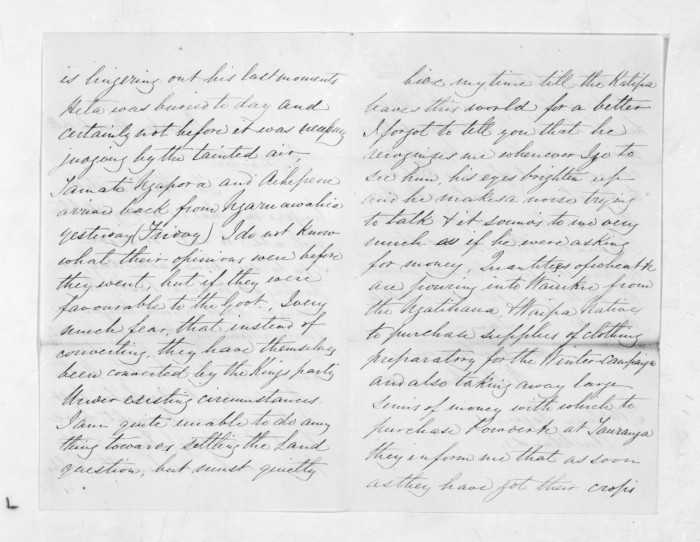 is lingering out his last moments
Heta was buried to day and
certainly not before it was necessary
judging by the tainted air,
Tamati Ngapora and
arrived back from Ngaruawahia
yesterday (Friday) I do not know
what their opinions were before
they went, but if they were
favourable to the Govt., I very
much fear, that instead of
converting, they have themselves
been converted by the Kings party
Under existing circumstances
I am quite unable to do any
thing towards settling the Land
question, but must quietly
bide my time till the Katipa
leaves this world for a better
I forgot to tell you that he
recognises me whenever I go to
see him, his eyes brighten up
and he makes a noise trying
to talk & it sounds to me very
much as if he were asking
for money, Quantities of wheat &c
are pouring into Waiuku from
the Ngatihaua, & Waipa Natives
to purchase supplies of clothing
preparatory for the Winter Campaign
and also taking away large
sums of money with which to
purchase Powder &c at Tauranga
they inform me that as soon
as they have got their crops